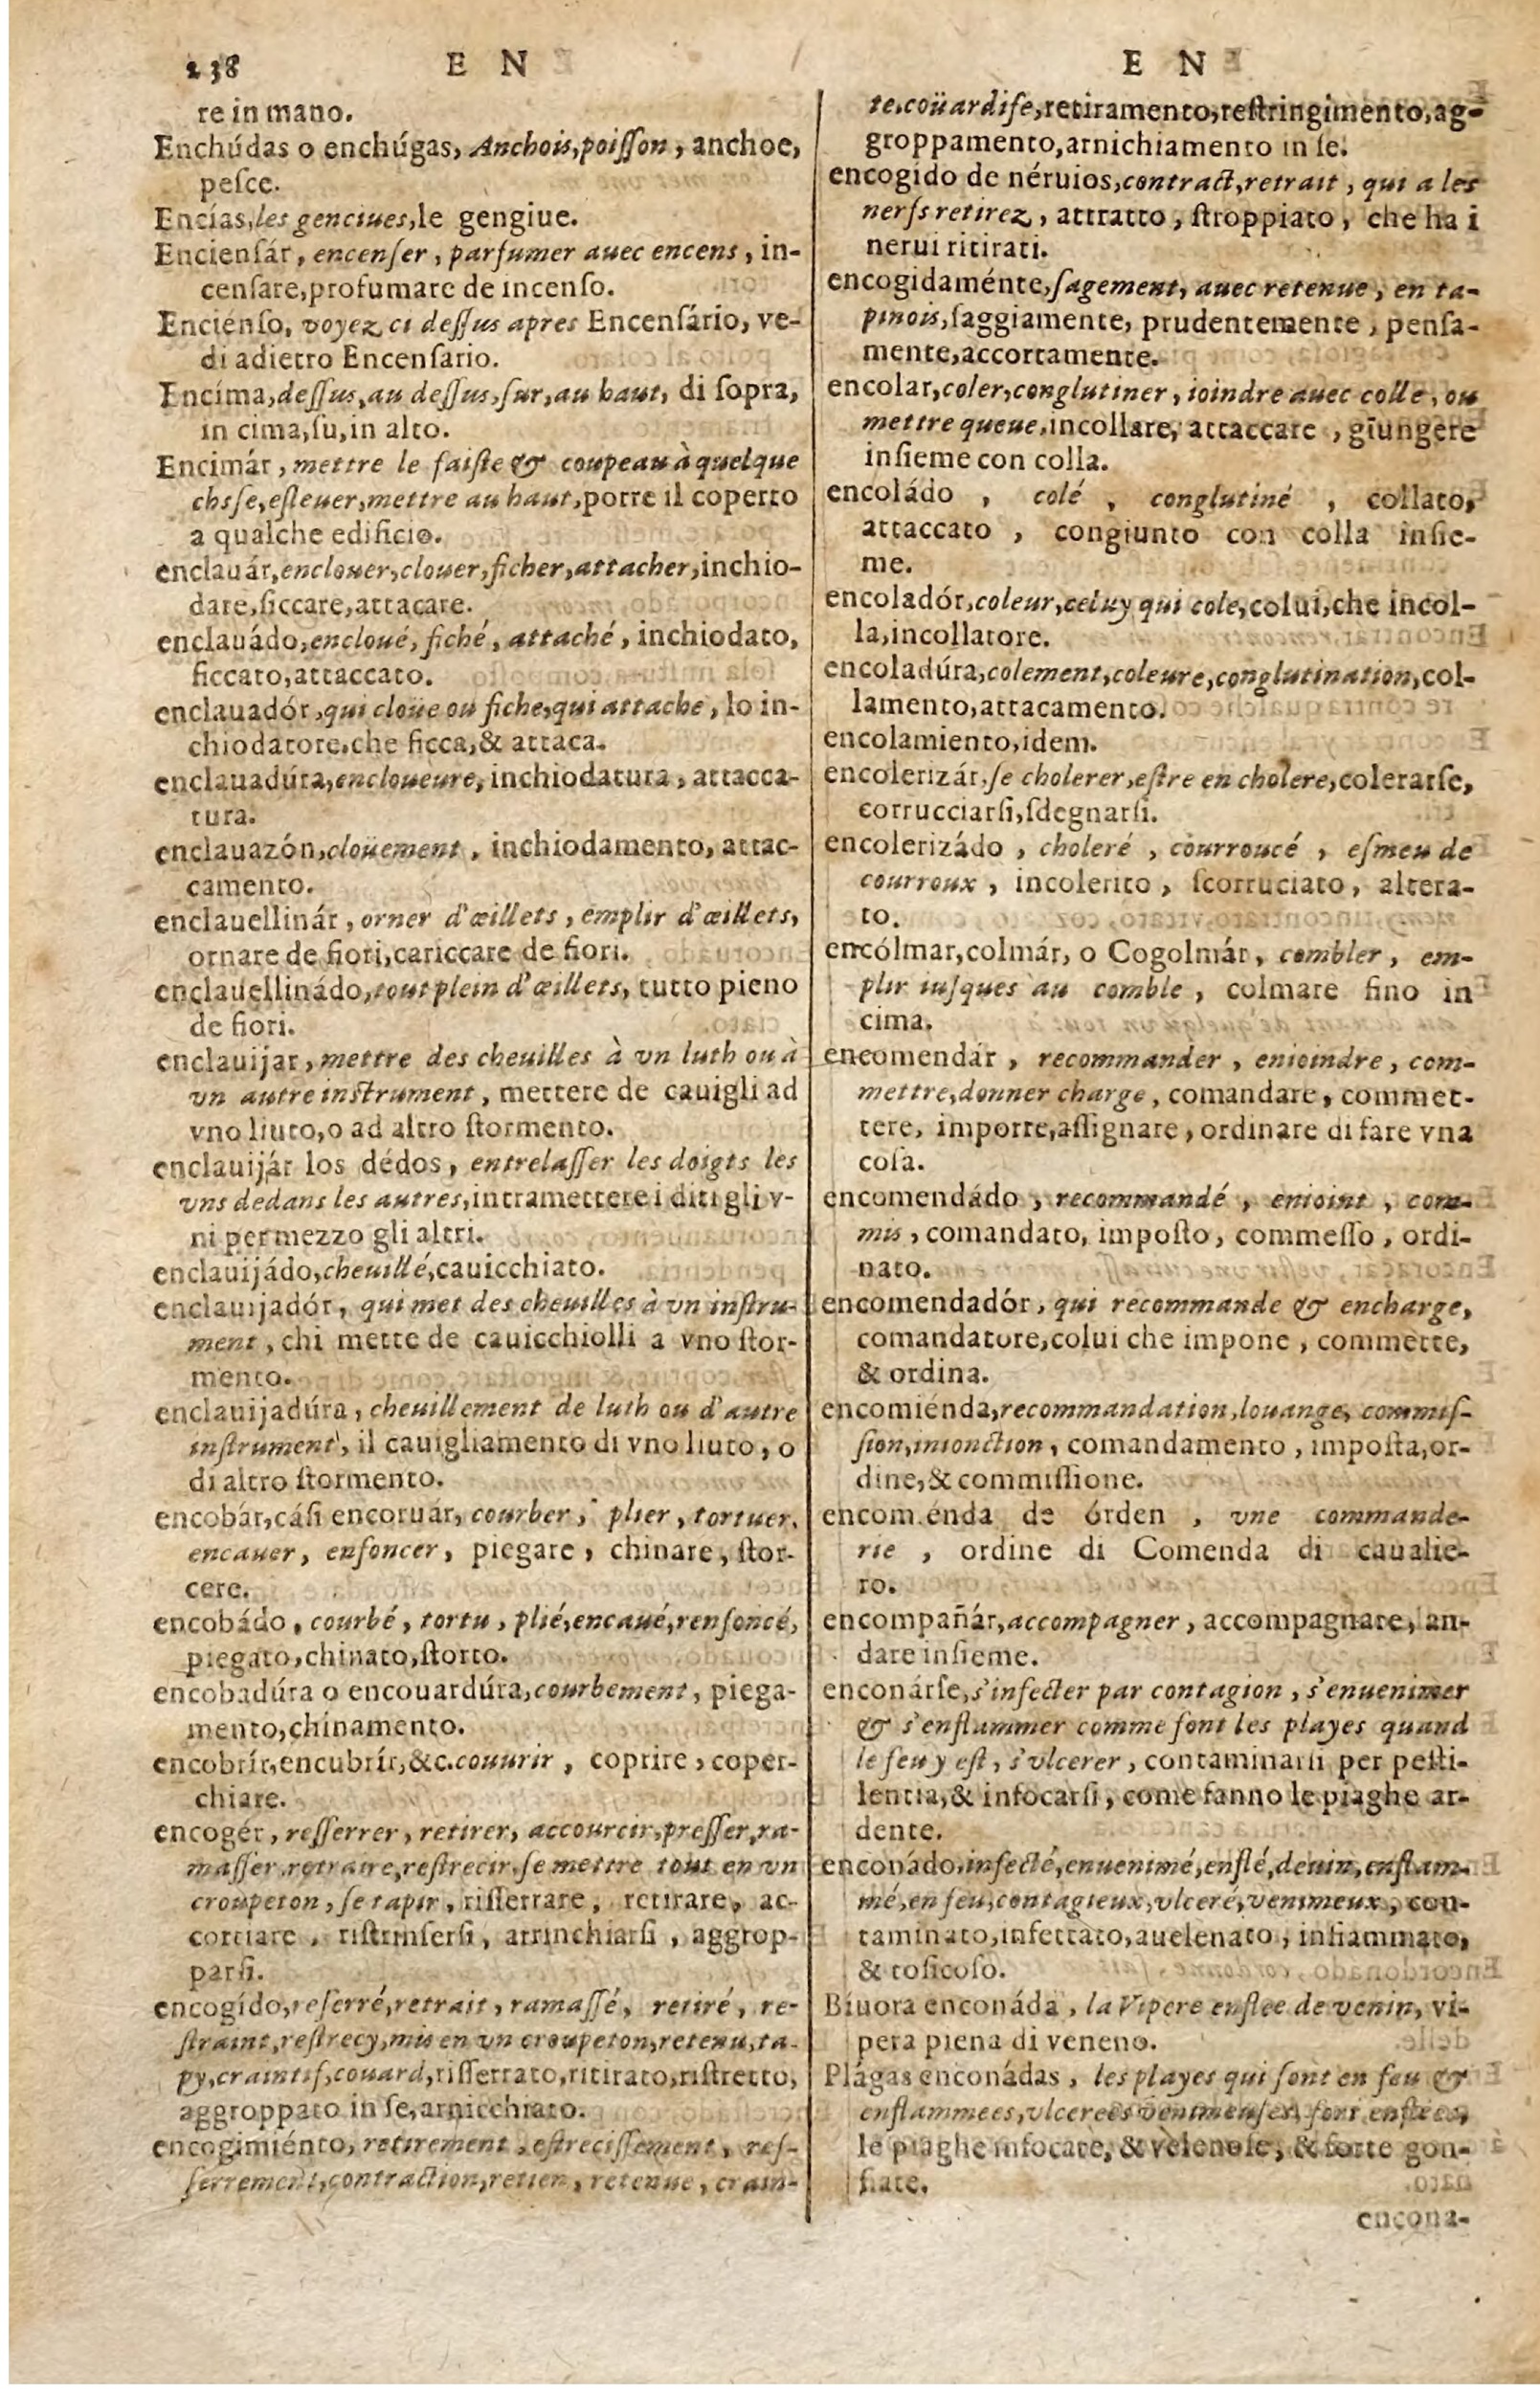 238 E N E N
re in mano.
Enchúdas o enchúgas, Anchois, poiſſon, anchoe,
peſce.
Encías, les genciues, le gengiue.
Encienſár, encenſer, parfumer auec encens, in-
cenſare, profumare de incenſo.
Enciénſo, voyez ci deſſus apres Encenſário, ve-
di adietro Encenſario.
Encíma, deſſus, au deſſus, ſur, au haut, di ſopra,
in cima, ſu, in alto.
Encimár, mettre le faiſte & coupeau à quelque
chsſe, eſleuer, mettre au haut, porre il coperto
a qualche edificio.
enclauár, enclouer, clouer, ficher, attacher, inchio-
dare, ficcare, attacare.
enclauádo, encloué, fiché, attaché, inchiodato,
ficcato, attaccato.
enclauadór, qui cloüe ou fiche, qui attache, lo in-
chiodatore, che ficca, & attaca.
enclauadúra, encloueure, inchiodatura, attacca-
tura.
enclauazón, cloüement, inchiodamento, attac-
camento.
enclauellinár, orner d'œillets, emplir d'œillets,
ornare de fiori, cariccare de fiori.
enclauellinádo, tout plein d'œillets, tutto pieno
de fiori.
enclauijar, mettre des cheuilles à vn luth ou à
vn autre inſtrument, mettere de cauigli ad
vno liuto, o ad altro ſtormento.
enclauijár los dédos, entrelaſſer les doigts les
vns dedans les autres, intramettere i diti gli v-
ni per mezzo gli altri.
enclauijádo, cheuillé, cauicchiato.
enclauijadór, qui met des cheuilles à vn inſtru-
ment, chi mette de cauicchiolli a vno ſtor-
mento.
enclauijadúra, cheuillement de luth ou d'autre
inſtrument, il cauigliamento di vno liuto, o
di altro ſtormento.
encobár, cáſi encoruár, courber, plier, tortuer,
encauer, enfoncer, piegare, chinare, ſtor-
cere.
encobádo, courbé, tortu, plié, encaué, renfoncé,
piegato, chinato, ſtorto.
encobadúra o encouardúra, courbement, piega-
mento, chinamento.
encobrír, encubrír, &c. couurir, coprire, coper-
chiare.
encogér, reſſerrer, retirer, accourcir, preſſer, ra-
maſſer, retraire, reſtrecir, ſe mettre tout en vn
croupeton, ſe tapir, riſſerrare, retirare, ac-
cortiare, riſtrinſerſi, arrinchiarſi, aggrop-
parſi.
encogído, reſerré, retrait, ramaſſé, retiré, re-
ſtraint, reſtrecy, mis en vn croupeton, retenu, ta-
py, craintif, couard, riſſerrato, ritirato, riſtretto,
aggroppato in ſe, arnicchiato.
encogimiénto, retirement, eſtreciſſement, reſ-
ſerrement, contraction, retien, retenue, crain-
te, coüardiſe, retiramento, reſtringimento, ag-
groppamento, arnichiamento in ſe.
encogido de néruios, contract, retrait, qui a les
nerfs retirez, attratto, ſtroppiato, che ha i
nerui ritirati.
encogidaménte, ſagement, auec retenue, en ta-
pinois, ſaggiamente, prudentemente, penſa-
mente, accortamente.
encolar, coler, conglutiner, ioindre auec colle, ou
mettre queue, incollare, attaccare, giungere
inſieme con colla.
encoládo, colé, conglutiné, collato,
attaccato, congiunto con colla inſie-
me.
encoladór, coleur, celuy qui cole, colui, che incol-
la, incollatore.
encoladúra, colement, coleure, conglutination, col-
lamento, attacamento.
encolamiento, idem.
encolerizár, ſe cholerer, eſtre en cholere, colerarſe,
corrucciarſi, ſdegnarſi.
encolerizádo, choleré, courroucé, eſmeu de
courroux, incolerito, ſcorruciato, altera-
to.
encólmar, colmár, o Cogolmár, combler, em-
plir iuſques au comble, colmare fino in
cima.
encomendár, recommander, enioindre, com-
mettre, donner charge, comandare, commet-
tere, imporre, aſſignare, ordinare di fare vna
coſa.
encomendádo, recommandé, enioint, com-
mis, comandato, impoſto, commeſſo, ordi-
nato.
encomendadór, qui recommande & encharge,
comandatore, colui che impone, commette,
& ordina.
encomiénda, recommandation, louange, commiſ-
ſion, inionction, comandamento, impoſta, or-
dine, & commiſſione.
encomiénda de órden, vne commande-
rie, ordine di Comenda di caualie-
ro.
encompañár, accompagner, accompagnare, an-
dare inſieme.
enconárſe, s'infecter par contagion, s'enuenimer
& s'enflammer comme font les playes quand
le feu y eſt, s'vlcerer, contaminarſi per peſti-
lentia, & infocarſi, come fanno le piaghe ar-
dente.
enconádo, infecté, enuenimé, enflé, de uin, enflam-
mé, en feu, contagieux, vlceré, venimeux, con-
taminato, infettato, auelenato, infiammato,
& toſicoſo.
Bíuora enconáda, la Vipere enflee de venin, vi-
pera piena di veneno.
Plágas enconádas, les playes qui ſont en feu &
enflammees, vlcerees venimeuſes, fort enflees,
le piaghe infocate, & velenoſe, & forte gon-
fiate.
encona-